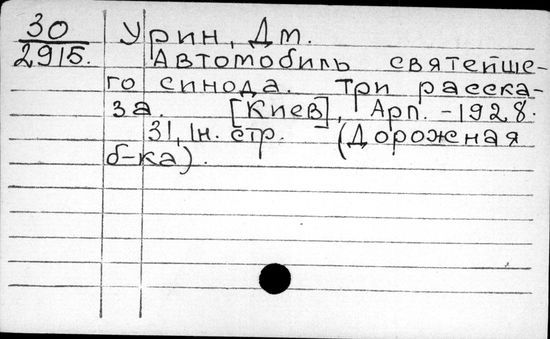 30
2915.
Урин, Дм.
Автомобиль святейше-
го синода. Три расска-
за [Киев], Арп. -1928.
31, 1н. стр. (Дорожная
б-ка).